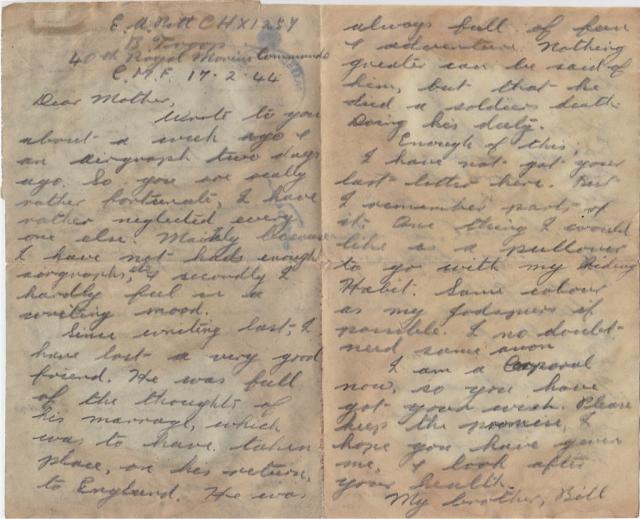 E. A. Nott CHX1257
B Troop
40th Royal Marine Commando
C.M.F. 17-2-44
Dear Mother,
Wrote to you
about a week ago &
an airgraph two days
ago. So you are really
rather fortunate, I have
rather neglected every
one else. Mainly because
I have not had enough
airgraphs, etc, & secondly I
hardly feel in a
writing mood.
Since writing last, I
have lost a very good
friend. He was full
of the thoughts of
his marrage, which
was to have taken
place, on his return,
to England. He was
always full of fun
& adventure. Nothing
greater can be said of
him, but that he
died a soldiers death
Doing his duty.
Enough of this,
I have not got your
last letter here. But
I remember parts of
it. One thing I would
like is a pullover
to go with my Riding
Habit. Same colour
as my
possible. I no doubt
need some anon
I am a Corporal
now, so you have
got your wish. Please
keep the promise, I
hope you have given
me, & look after
your health.
My brother, Bill